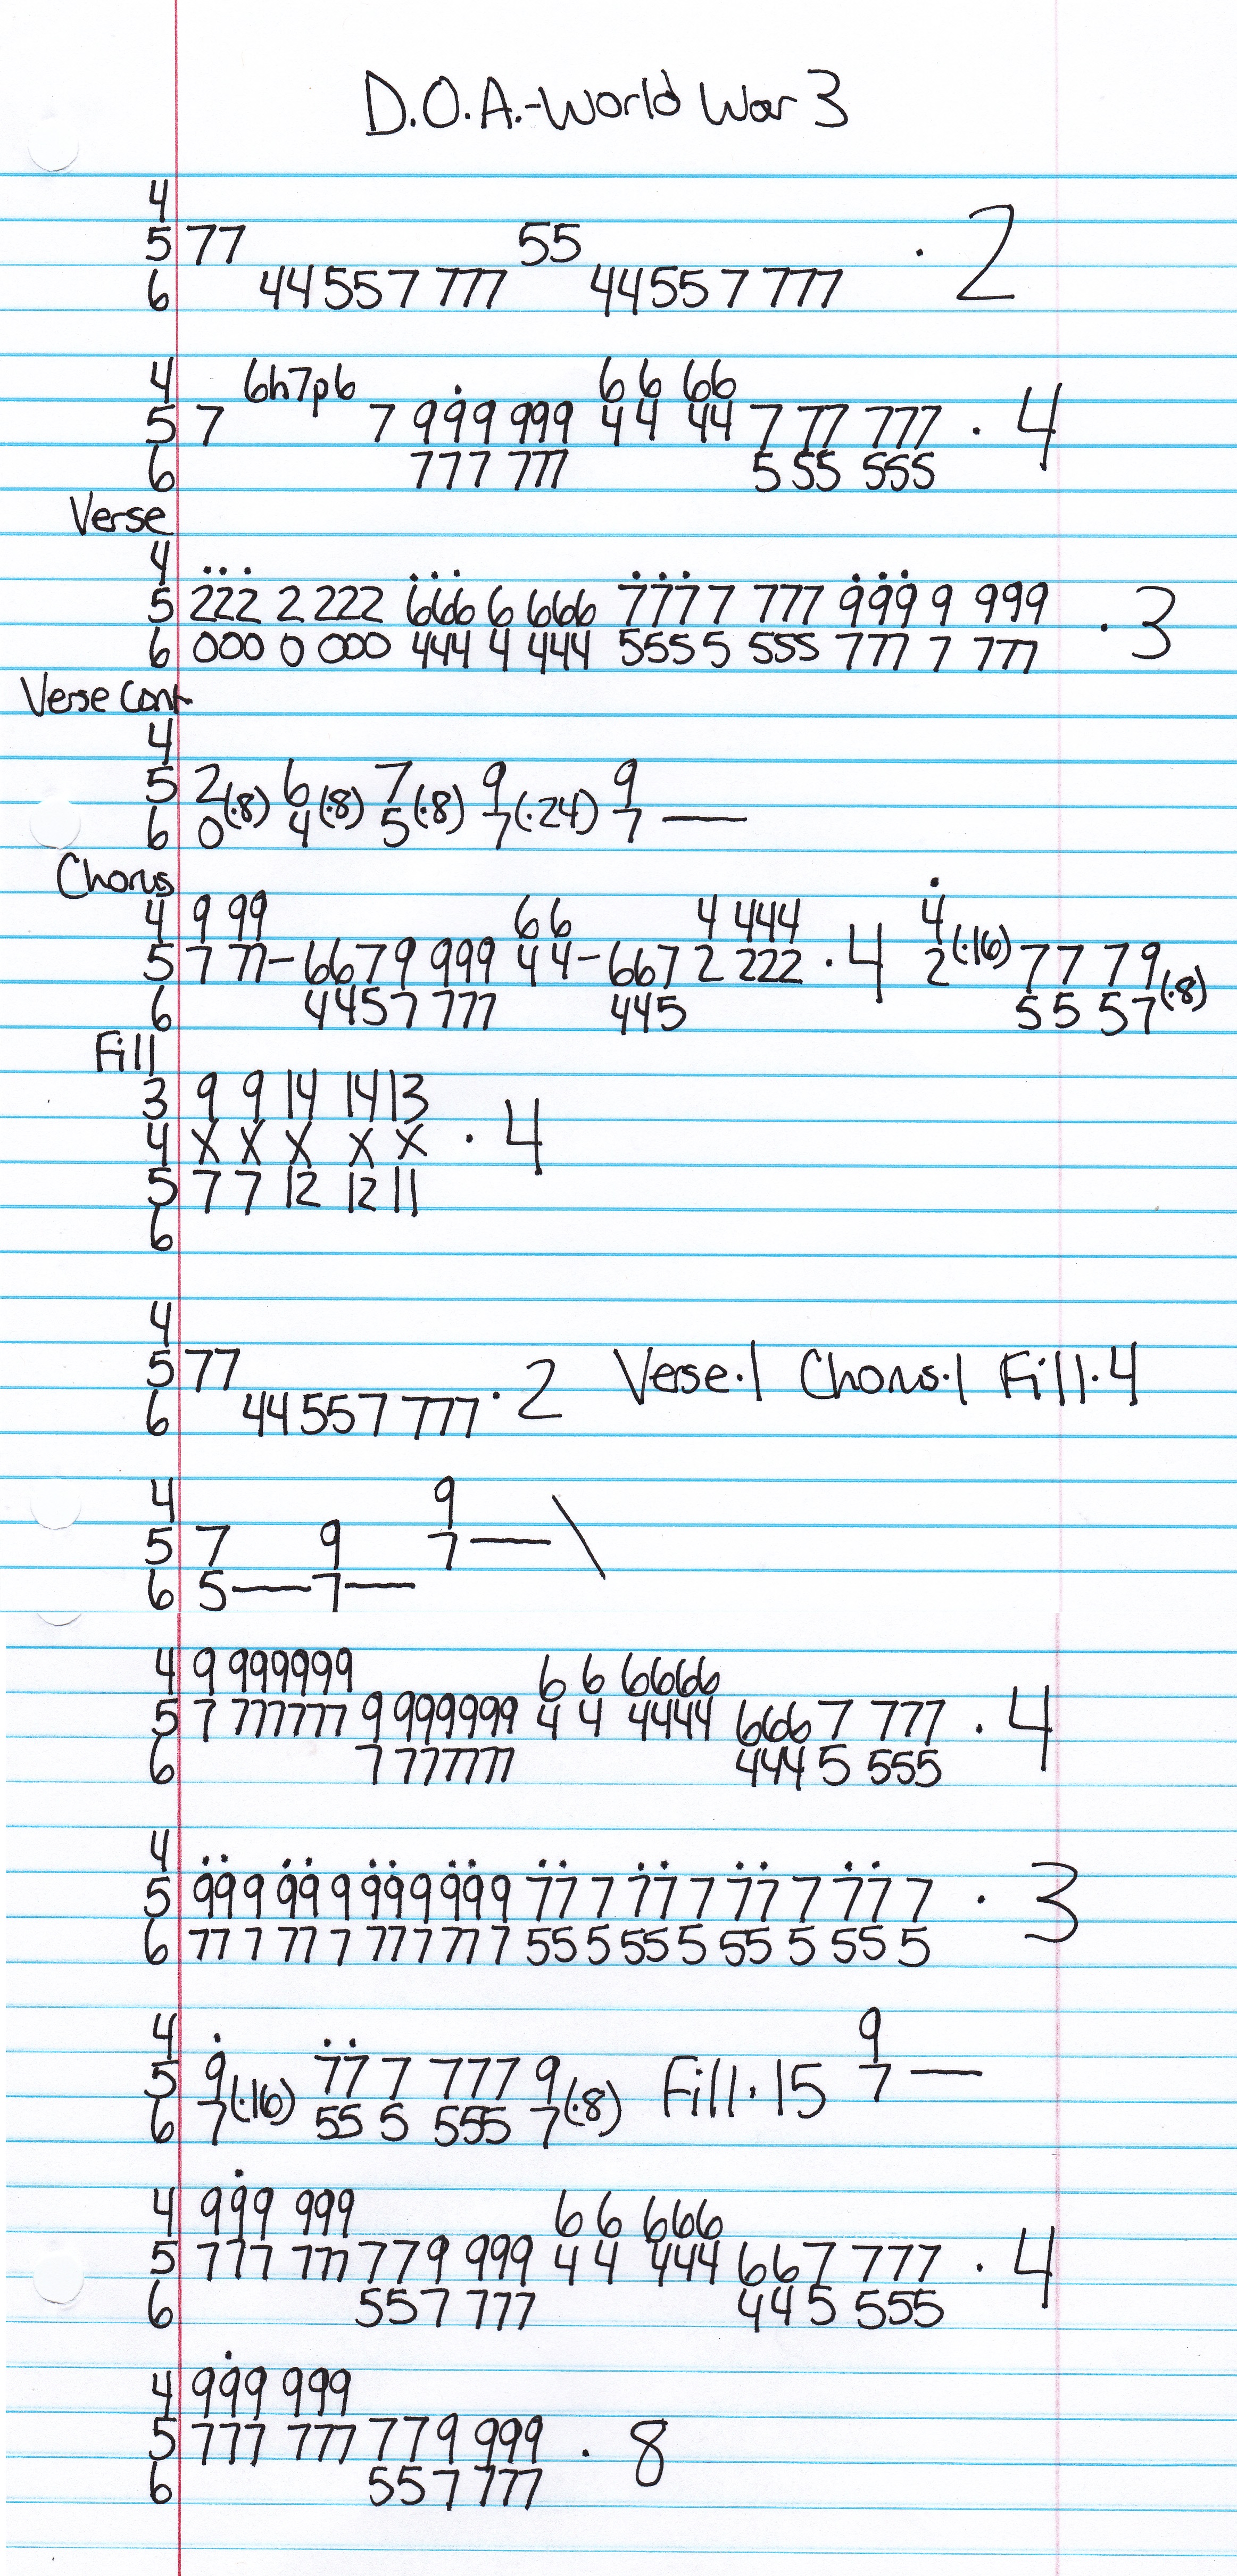 D.O.A.-World War 3
4
5 77 55 · 2
6 44 55 7 777 44 55 7 777
4 6h7p6 6 6 66
5 7 7 999 999 4 4 44 7 77 777 · 4
6 777 777 5 55 555
Verse
4
5 222 2 222 666 6 666 7777 777 999 9 999 · 3
6 000 0 000 444 4 444 5555 555 777 7 777
Verse Cont
4
5 2(·8) 6(·8) 7(·8) 9(·24) 9
6 0 4 5 7 7 —
Chorus
4 9 99 66 4 444 4
5 7 77-6679 999 44-667 2 222 · 4 2(·16) 77 79(·8)
6 4457 777 445 55 57
Fill
3 9 9 14 14 13
4 X X X X X · 4
5 7 7 12 12 11
6
4
5 77 · 2 Verse·1 Chorus·1 Fill·4
6 44 55 7 777
4 9
5 7 9 7 — \
6 5 — 7 —
4 9 999999 6 6 6666
5 7 777777 9 999999 4 4 4444 666 7 777 · 4
6 7 777777 444 5 555
4
5 99 9 99 9 99 9 99 9 77 7 77 7 77 7 77 7 · 3
6 77 7 77 7 77 7 77 7 55 5 55 5 55 5 55 5
4 9
5 9(·16) 77 7 777 9(·8) Fill·15 7 —
6 7 55 5 555 7
4 999 999 6 6 666
5 777 777 779 999 4 4 444 667 777 · 4
6 557 777 445 555
4 999 999
5 777 777 779 999 · 8
6 557 777